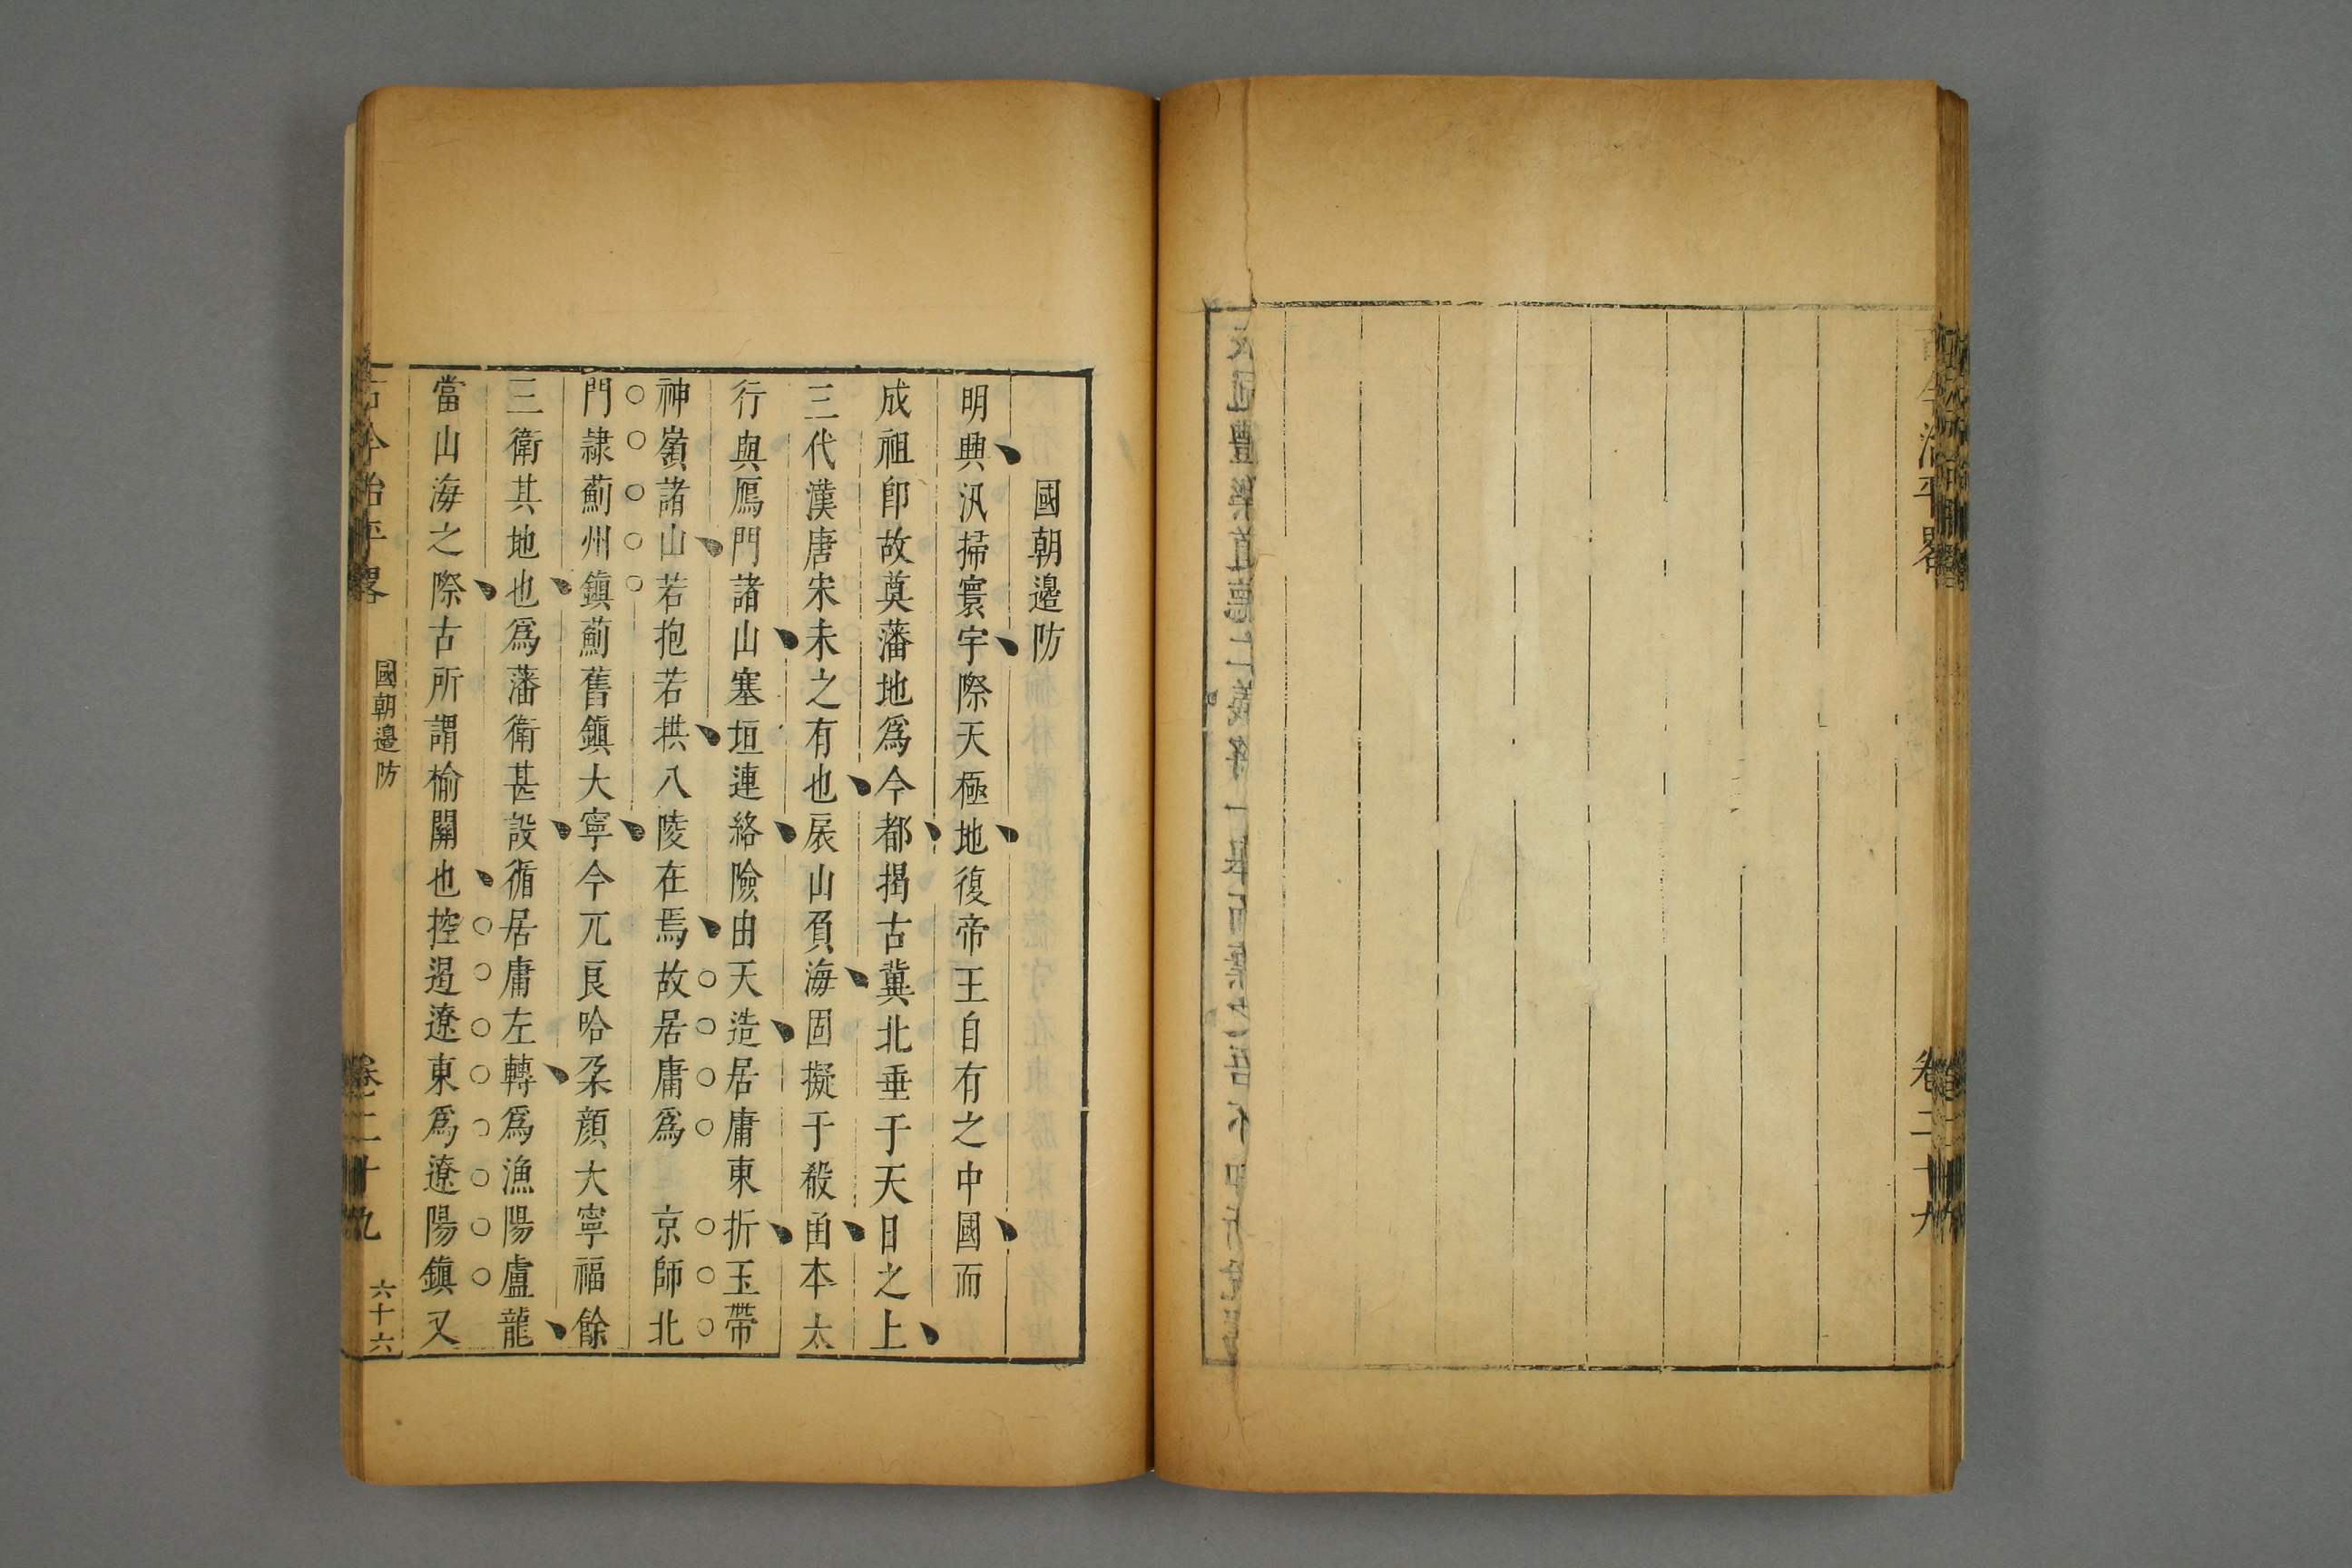 國朝邊防
明興汎掃寰宇際天極地復帝王自有之中國而
成祖卽故奠藩地爲今都揭古冀北垂于天日之上
三代漢唐宋未之有也扆山負海固擬于殽凾本太
行與鴈門諸山塞垣連絡險由天造居庸東折玉帶
神嶺諸山若抱若拱八陵在焉故居庸爲 京師北
門隷薊州鎮薊舊鎮大寧今兀良哈朶顔大寧福餘
三衛其地也爲藩衛甚設循居庸左轉爲漁陽盧龍
當山海之際古所謂榆關也控遏遼東爲遼陽鎮又
古今治平畧
國朝邊防
卷二十九
六十六
古今治平畧
卷二十九